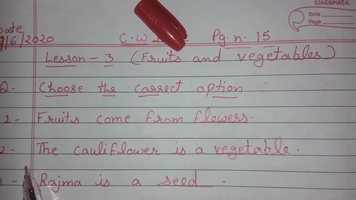 CLASSMATE
Date
Page
Date
9/6/2020 C.W Pg.n. 15
Lesson - 3 (Fruits and vegetables)
Q- Choose the correct option
1- Fruits come from flowers.
2- The cauliflower is a vegetable.
Rajma is a seed.